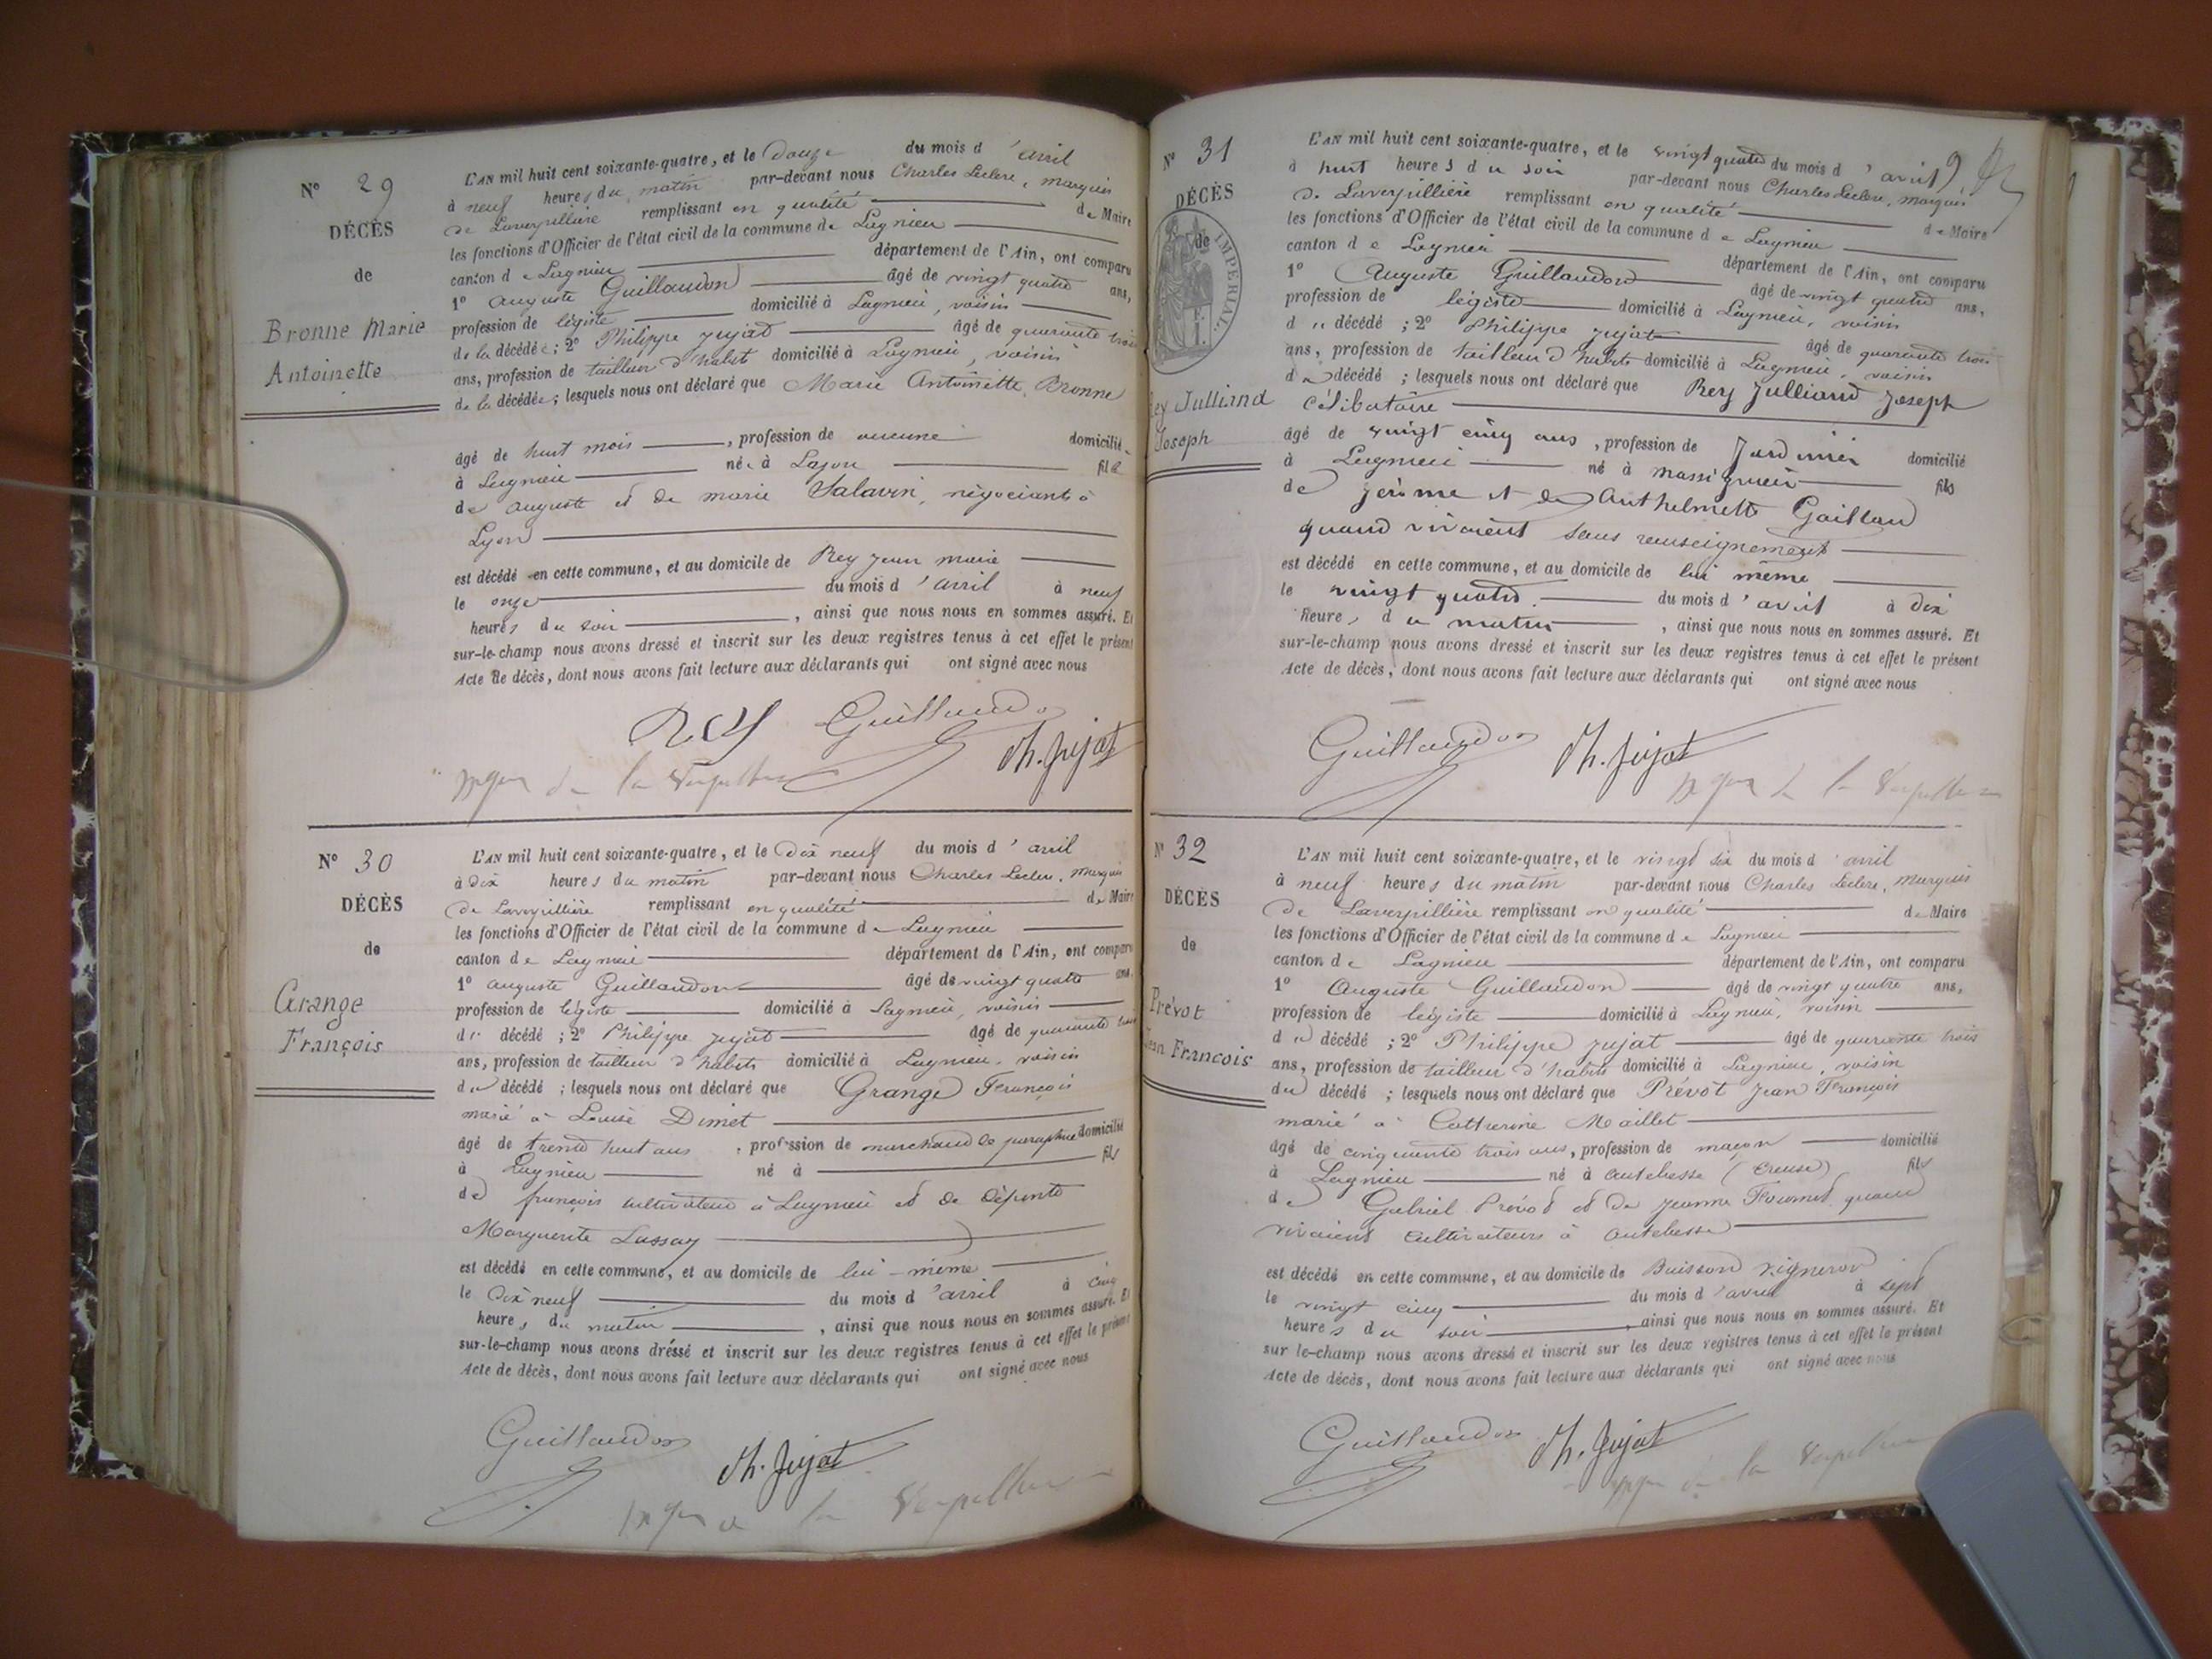 N° 29
DÉCÈS
de
Bronne Marie
Antoinette
L'AN mil huit cent soixante-quatre, et le douze du mois d'avril
à neuf heures du matin par-devant nous Charles Leclerc, marquis
de Laverpillière remplissant en qualité de Maire
les fonctions d'Officier de l'état civil de la commune de Lagnieu
canton de Lagnieu département de l'Ain, ont comparu
1° Auguste Guillaudon âgé de vingt quatre ans,
profession de légiste domicilié à Lagnieu, voisin
de la décédée; 2° Philippe Jujat âgé de quarante trois
ans, profession de tailleur d'habits domicilié à Lagnieu, voisin
de la décédée; lesquels nous ont déclaré que Marie Antoinette Bronne
âgé de huit mois, profession de aucune domicilié
à Lagnieu née à Lyon fille
de Auguste et de Marie Salavin, négociants à
Lyon
est décédé en cette commune, et au domicile de Rey Jean Marie
le onze du mois d'avril à neuf
heures du soir, ainsi que nous nous en sommes assuré. Et
sur-le-champ nous avons dressé et inscrit sur les deux registres tenus à cet effet le présent
Acte de décès, dont nous avons fait lecture aux déclarants qui ont signé avec nous
Rey Guillaudon
Ph. Jujat
de la Verpilliere
N° 30
DÉCÈS
de
Grange
François
L'AN mil huit cent soixante-quatre, et le dix neuf du mois d'avril
à dix heures du matin par-devant nous Charles Leclerc, marquis
de Laverpillière remplissant en qualité de Maire
les fonctions d'Officier de l'état civil de la commune de Lagnieu
canton de Lagnieu département de l'Ain, ont comparu
1° Auguste Guillaudon âgé de vingt quatre ans,
profession de légiste domicilié à Lagnieu, voisin
du décédé; 2° Philippe Jujat âgé de quarante trois
ans, profession de tailleur d'habits domicilié à Lagnieu, voisin
du décédé; lesquels nous ont déclaré que Grange François
marié à Louise Dimet
âgé de trente huit ans, profession de marchand de parapluie domicilié
à Lagnieu né à fils
de françois cultivateur à Lagnieu et de défunte
Marguerite Lassay
est décédé en cette commune, et au domicile de lui-même
le dix neuf du mois d'avril à cinq
heures du matin, ainsi que nous nous en sommes assuré. Et
sur-le-champ nous avons dréssé et inscrit sur les deux registres tenus à cet effet le présent
Acte de décès, dont nous avons fait lecture aux déclarants qui ont signé avec nous
Guillaudon
Ph. Jujat
de la Verpilliere
N° 31
DÉCÈS
de
IMPERIAL.
Rey Julliand
Joseph
L'AN mil huit cent soixante-quatre, et le vingt quatre du mois d'avril
à huit heures du soir par-devant nous Charles Leclerc, marquis
de Laverpillière remplissant en qualité de Maire
les fonctions d'Officier de l'état civil de la commune de Lagnieu
canton de Lagnieu département de l'Ain, ont comparu
1° Auguste Guillaudon âgé de vingt quatre ans,
profession de légiste domicilié à Lagnieu, voisin
du décédé; 2° Philippe Jujat âgé de quarante trois
ans, profession de tailleur d'habits domicilié à Lagnieu, voisin
du décédé; lesquels nous ont déclaré que Rey Julliand Joseph
célibataire
âgé de vingt cinq ans, profession de Jardinier domicilié
à Lagnieu né à Massignieu fils
de Jérôme et de Anthelmette Gaillard
quand vivaient sans renseignements
est décédé en cette commune, et au domicile de lui même
le vingt quatre du mois d'avril à dix
heures du matin, ainsi que nous nous en sommes assuré. Et
sur-le-champ nous avons dressé et inscrit sur les deux registres tenus à cet effet le présent
Acte de décès, dont nous avons fait lecture aux déclarants qui ont signé avec nous
Guillaudon Ph. Jujat
de la Verpilliere
N° 32
DÉCÈS
de
Prévot
Jean François
L'AN mil huit cent soixante-quatre, et le vingt six du mois d'avril
à neuf heures du matin par-devant nous Charles Leclerc, marquis
de Laverpillière remplissant en qualité de Maire
les fonctions d'Officier de l'état civil de la commune de Lagnieu
canton de Lagnieu département de l'Ain, ont comparu
1° Auguste Guillaudon âgé de vingt quatre ans,
profession de légiste domicilié à Lagnieu, voisin
du décédé; 2° Philippe Jujat âgé de quarante trois
ans, profession de tailleur d'habits domicilié à Lagnieu, voisin
du décédé; lesquels nous ont déclaré que Prévôt Jean François
marié à Catherine Maillet
âgé de cinquante trois ans, profession de maçon domicilié
à Lagnieu né à Autebesse (Creuse) fils
de Gabriel Prévot et de Jeanne Fournet quand
vivaient cultivateurs à Autebesse
est décédé en cette commune, et au domicile de Buisson vigneron
le vingt cinq du mois d'avril à sept
heures du soir, ainsi que nous nous en sommes assuré. Et
sur le-champ nous avons dressé et inscrit sur les deux registres tenus à cet effet le présent
Acte de décès, dont nous avons fait lecture aux déclarants qui ont signé avec nous
Guillaudon Ph. Jujat
de la Verpilliere